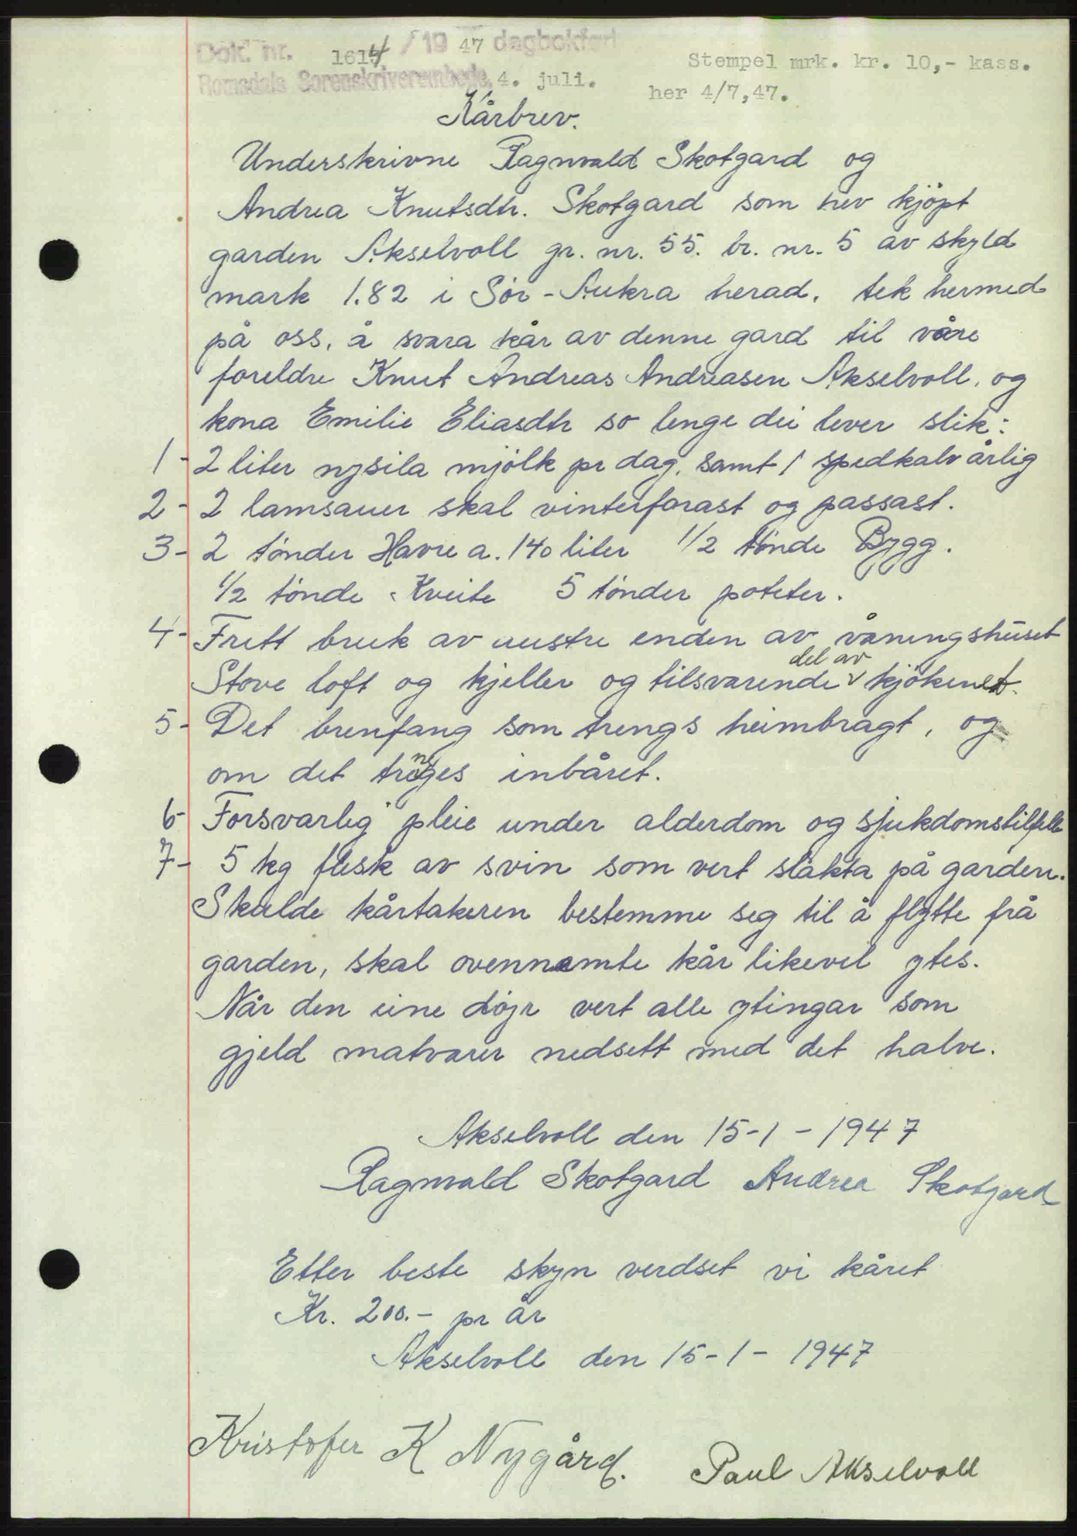 Dok. nr. 1614 / 19 47 dagbokført
Stempel mrk. kr. 10,- kass.
Romsdals Sorenskriverembede, 4. juli.
her 4/7,47.
Kårbrev.
Underskrivne Ragnvald Skotgard og
Andrea Knutsdtr. Skotgard som hev kjöpt
garden Akselvoll gr. nr. 55. br. nr. 5 av skyld
mark 1.82 i Sör-Aukra herad, tek hermed
på oss, å svara kår av denne gard til våre
foreldre Knut Andreas Andreasen Akselvoll, og
kona Emilie Eliasdtr so lenge dei lever slik:
1- 2 liter nysila mjölk pr dag, samt 1 spedkalv årlig
2- 2 lamsauer skal vinterforast og passast.
3- 2 tönder Havre a. 140 liter 1/2 tönde Bygg.
1/2 tönde Kveite 5 tönder poteter.
4- Fritt bruk av austre enden av våningshuset
Stove loft og kjeller og tilsvarende del av kjökenet.
5- Det brenfang som trengs heimbragt, og
om det trenges inbåret.
6- Forsvarleg pleie under alderdom og sjukdomstilfelle
7- 5 kg flesk av svin som vert slakta på garden.
Skulde kårtakeren bestemme seg til å flytte frå
garden, skal ovennemte kår likevel ytes.
Når den eine döyr vert alle ytingar som
gjeld matvarer nedsett med det halve.
Akselvoll den 15-1-1947
Ragnvald Skotgard Andrea Skotgard
Etter beste skyn verdset vi kåret
Kr. 200.- pr år
Akselvoll den 15-1-1947
Kristofer K Nygård. Paul Akselvoll